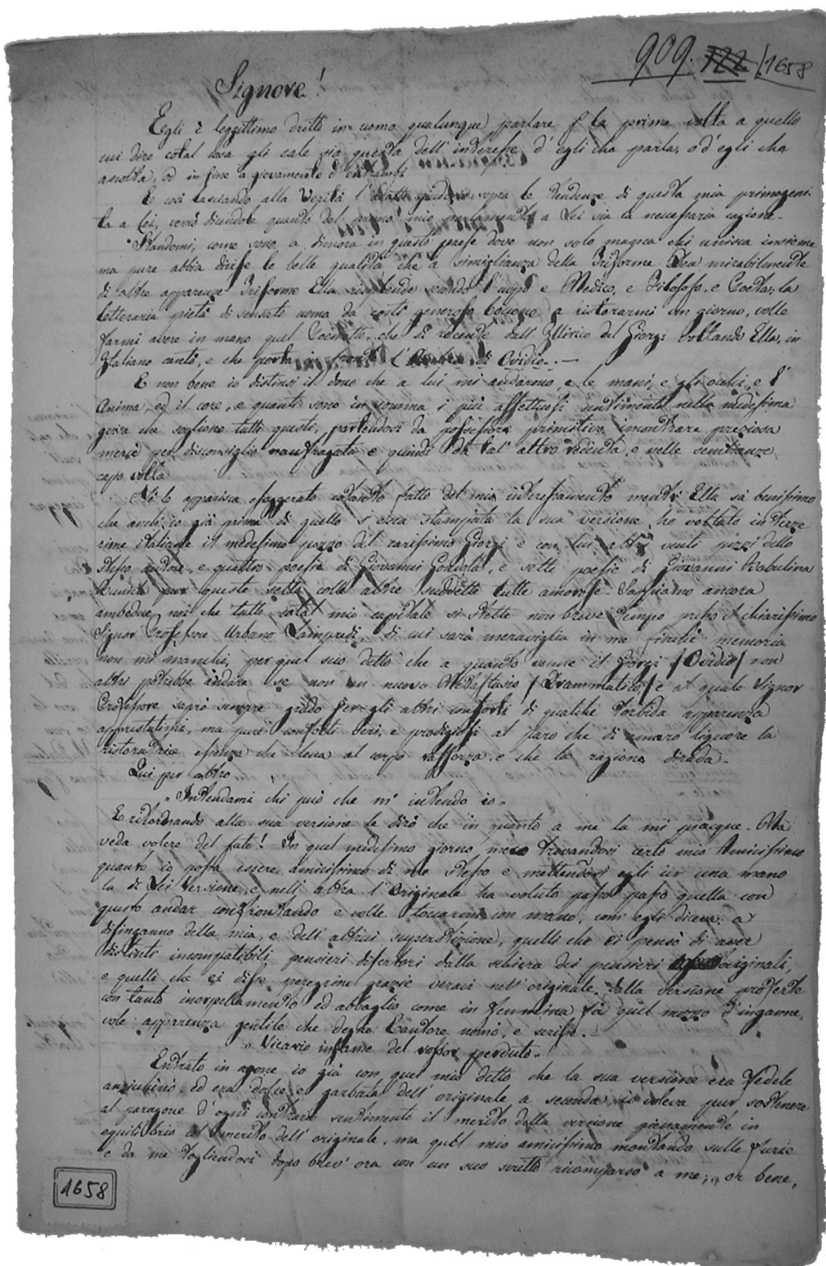 909. 122/1658
Signore!
Egli è legittimo dritto in uomo qualunque parlare p la prima volta a quello
cui dire cotal cosa gli cale sia questa dell'interesse d'egli che parla, o d'egli che
ascolta, od in fine a giovamento d'entrambi
E così lasciando alla Verità l'esatto giudizio sopra le tendenze di questa mia primogeni-
ta a Lei, verrò dicendole quanto del mio a Lei sia la necessaria cagione.
Standomi, come sono, a dimora in questo paese dove non solo manca chi unisca insieme
ma pure abbia divise le belle qualità che a simiglianza della Triforme Dea mirabilmente
di altre apparenze Triforme Ella secondo l'uopo e Medico, e Filosofo, e Poeta; la
letteraria pietà di sensato uomo da costì generoso a ristorarmi un giorno, volle
farmi avere in mano quel Poemetto, che di recente dall'Illirico del Giorgi voltando Ella, in
Italiano cantò, e che porta in fronte di Ovidio. —
E non bene io distinsi il dono che a lui mi andarono, e le mani, e gli occhi, e l'
Anima, ed il core, e quanti sono in somma i più affettuosi sentimenti nella medesima
guisa che sogliono tutti questi, portandosi da primitivo preziosa
merce per disconsiglio naufragata e quindi da tal' altro veduta, e nelle sembianze
capo volta
Nè le apparisca esaggerato cotanto fatto del mio interessamento mentre Ella sa benissimo
che anch'io già prima di quello si fosse stampata la sua versione ho voltato in terze
rime italiane il medesimo pezzo del carissimo Giorgi e con lui altri venti pezzi dello
stesso autore, e quattro poesie di Giovanni Gondola, e sette poesie di Giovanni
per queste sette colle altre suddette tutte amorose. Sappiamo ancora
ambedue noi che tutto cotal mio capitale si stette non breve tempo presso il chiarissimo
Signor Professore Urbano Lampredi. di cui sarà meraviglia in me finchè memoria
non mi manchi, per quel suo detto che a quando venne il Giorgi /Ovidio/ non
altri potrebbe andare se non un nuovo Metastasio /Drammatico/ e al quale Signor
Professore saprò sempre grado per gli altri conforti di qualche torbida apparenza
apprestatimi, ma pure conforti veri, e prodigiosi al paro che di amaro liquore la
ristoratrice efficacia che lena al corpo rafforza, e che la ragione dirada.
Qui per altro
„ Intendami chi può che m'intendo io „
E ritornando alla sua versione le dirò che in quanto a me la mi piacque. Ma
veda volere del fato! In quel medesimo giorno meco trovandosi certo mio Amicissimo
quanto io possa essere amicissimo di me stesso e mettendosi egli in una mano
la di Lei versione, e nell'altra l'Originale ha voluto passo passo quella con
questo andar confrontando e volle toccarmi con mano, com'egli diceva, a
disinganno della mia, e dell'altrui superstizione, quelli che ei pensò di aver
distinti incompatibili pensieri disertori dalla schiera dei pensieri originali,
e quelle che ei disse peregrine grazie veraci nell'originale dalla versione profferte
con tanto inorpellamento ed abbaglio come in femmina fa quel mezzo d'inganne-
vole apparenza gentile che degno Cantore nomò, e scrisse. —
„ Vicario infame del rossor perduto „
Entrato in agone io già con quel mio detto che la sua versione era Fedele
anzichenò, ed era dolce e garbata dell'originale a seconda, io voleva pur sostenere
al paragone d'ogni contrario sentimento il merito della versione pienamente in
equilibrio al merito dell'originale, ma quel mio amicissimo montando sulle furie
e da me togliendosi dopo brev'ora con un suo scritto ricomparso a me; „ or bene,
1658